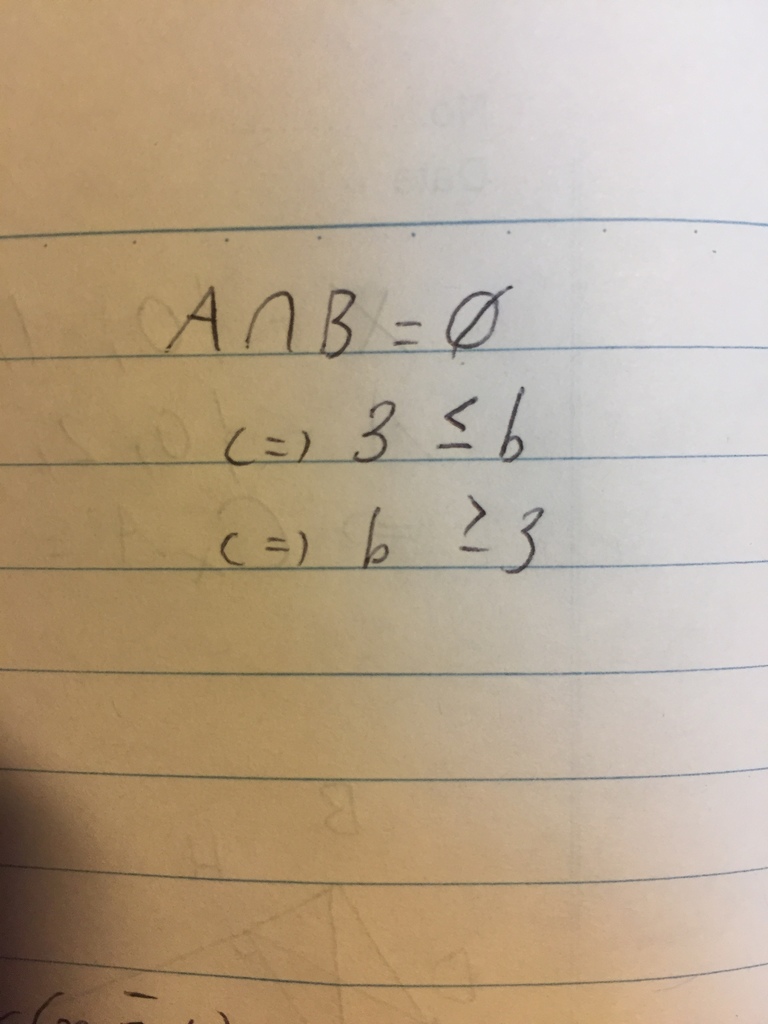 A ∩ B = Ø
<=> 3 ≤ b
<=> b ≥ 3